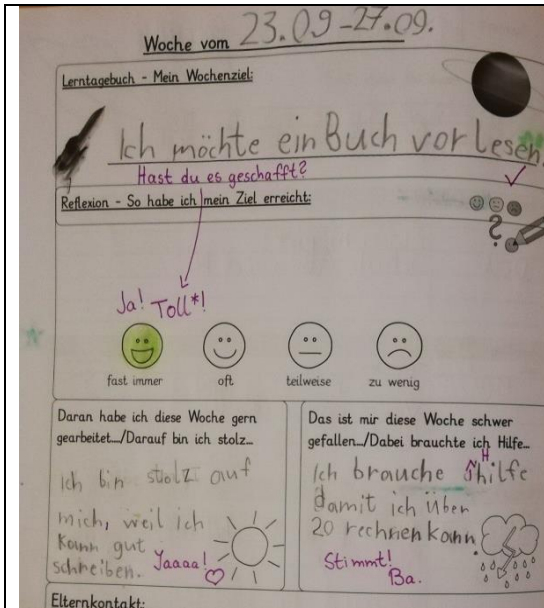 Woche vom 23.09-27.09.
Lerntagebuch - Mein Wochenziel:
Ich möchte ein Buch vor lesen.
Hast du es geschafft?
Reflexion - So habe ich mein Ziel erreicht:
?
Ja! Toll*!
fast immer oft teilweise zu wenig
Daran habe ich diese Woche gern
gearbeitet.../Darauf bin ich stolz...
Ich bin stolz auf
mich, weil ich
kann gut
schreiben. Yaaaa!
Das ist mir diese Woche schwer
gefallen.../Dabei brauchte ich Hilfe...
Ich brauche Hhilfe
damit ich über
20 rechnen kann.
Stimmt!
Ba.
Elternkontakt: